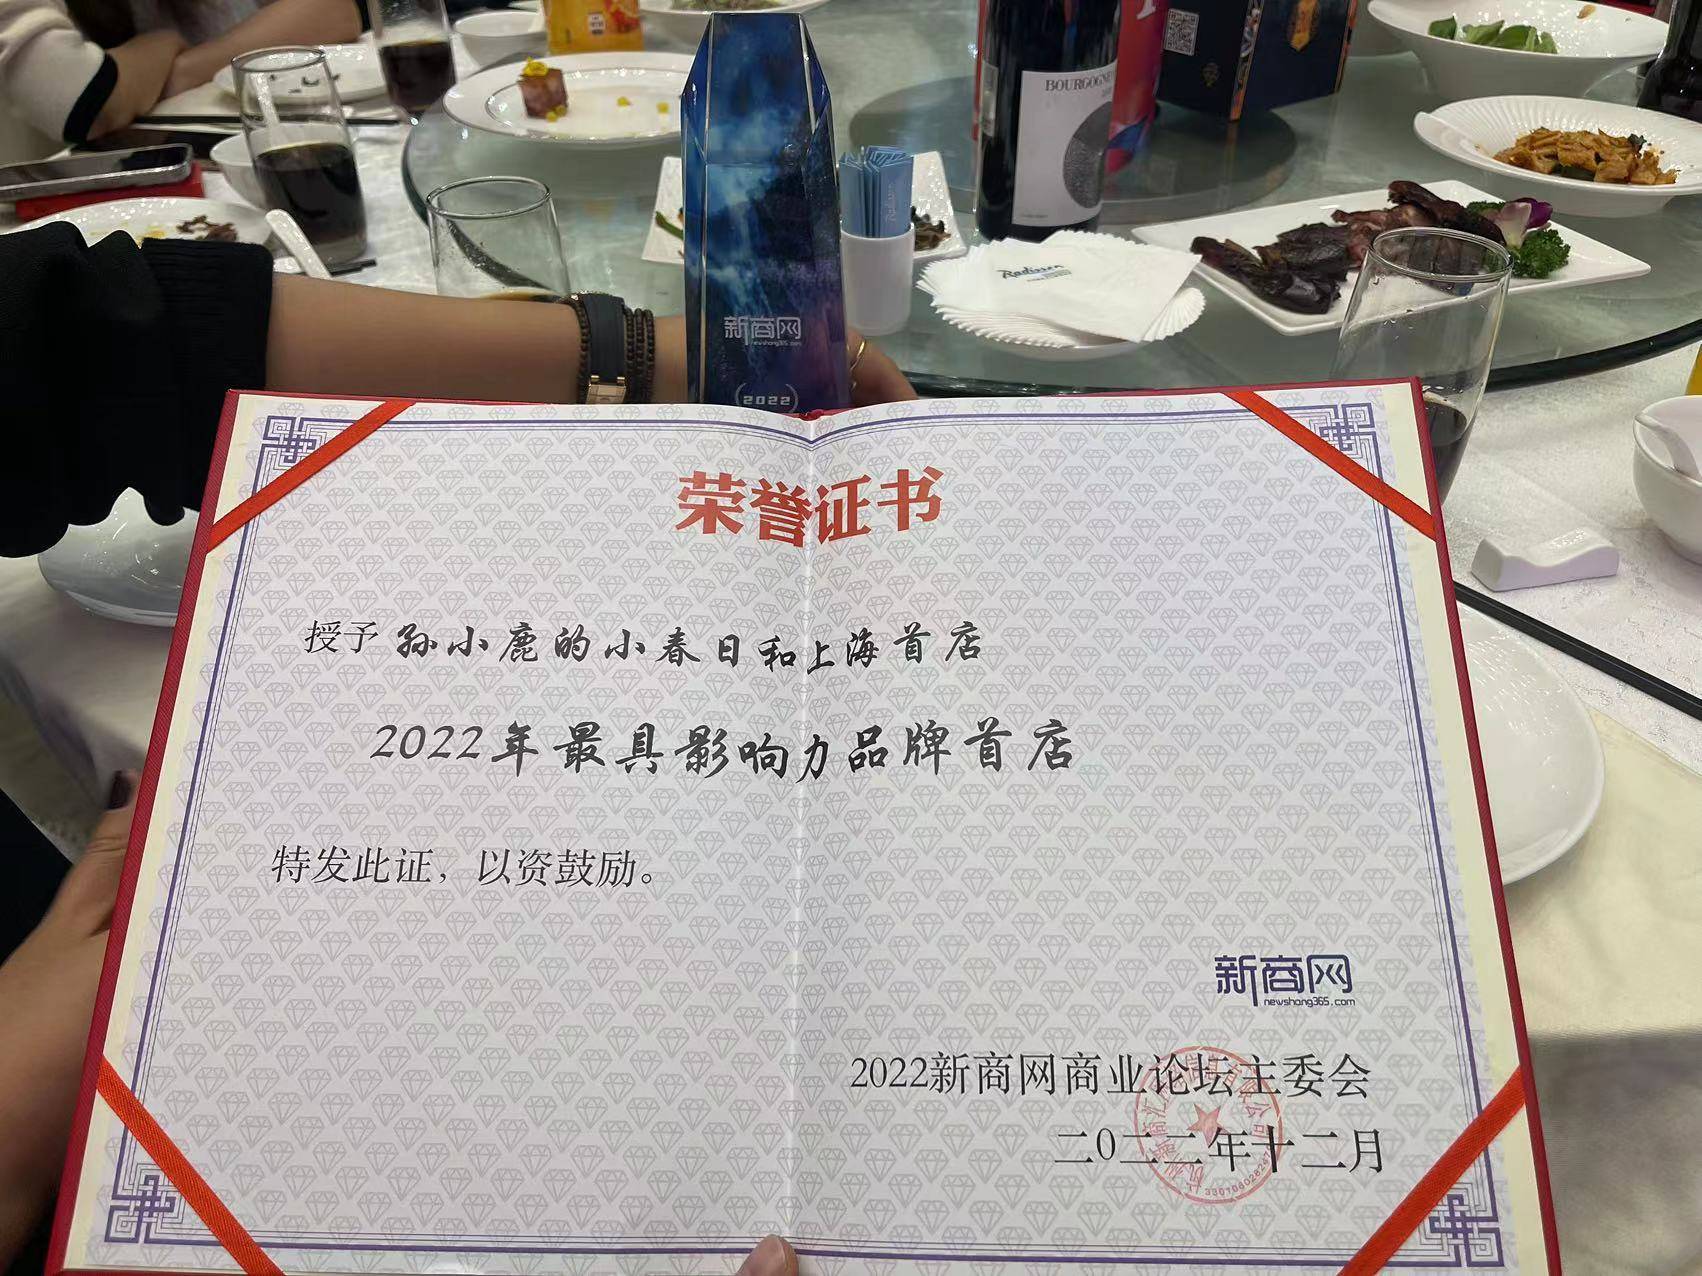 BOURGOGNE
Radisson
新商网
newshang365.com
2022
荣誉证书
授予 孙小鹿的小春日和上海首店
2022年最具影响力品牌首店
特发此证，以资鼓励。
新商网
newshang365.com
2022新商网商业论坛主委会
二0二二年十二月